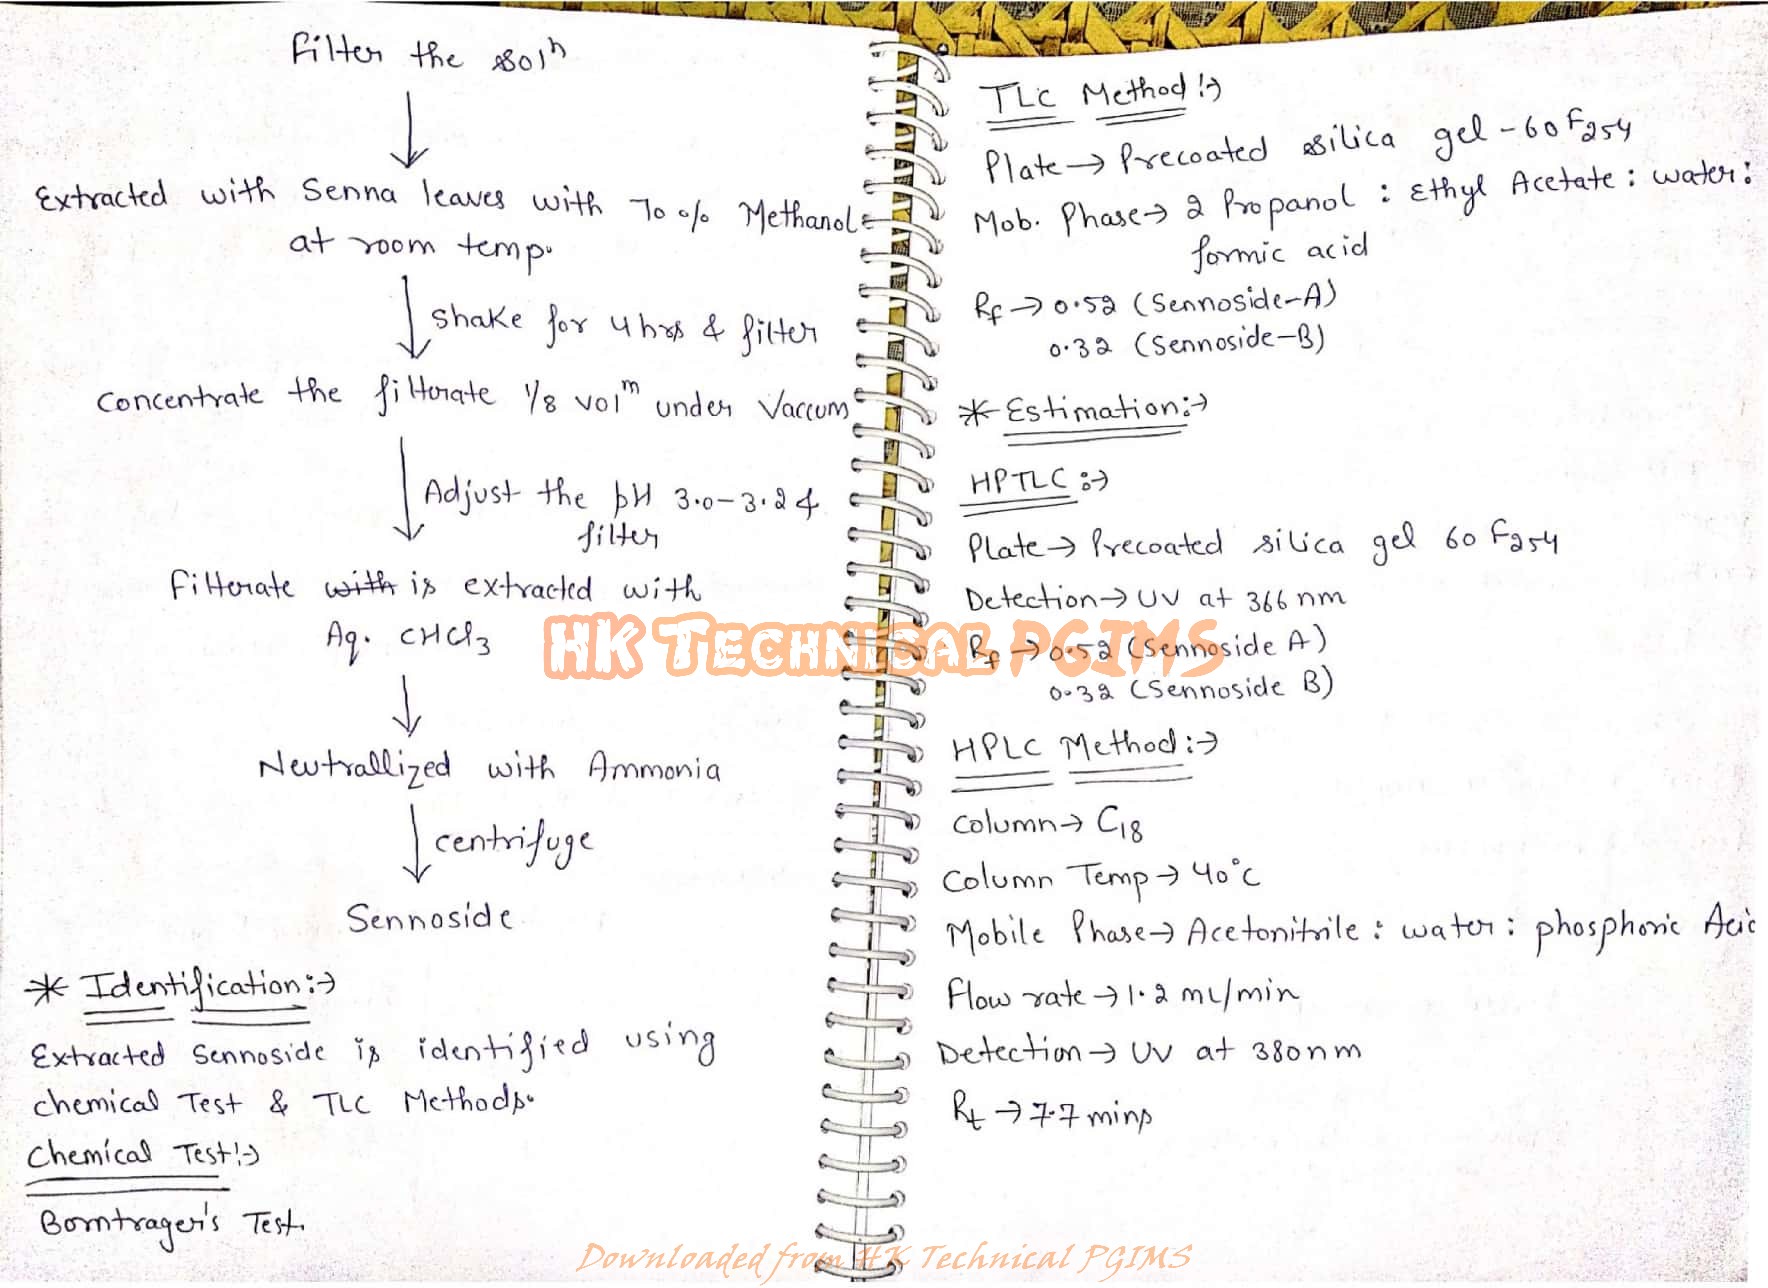 Filter the solⁿ
↓
Extracted with Senna leaves with 70% Methanol
at room temp.
↓ Shake for 4 hrs & filter
Concentrate the filterate 1/8 volᵐ under Vaccum
↓ Adjust the pH 3.0-3.2 &
filter
Filterate with is extracted with
Aq. CHCl₃
↓
Neutrallized with Ammonia
↓ centrifuge
Sennoside
* Identification:→
Extracted Sennoside is identified using
chemical Test & TLC Methods.
Chemical Test:→
Borntrager's Test.
TLC Method:→
Plate→ Precoated silica gel-60F254
Mob. Phase→ 2 Propanol : Ethyl Acetate : water :
formic acid
Rf → 0.52 (Sennoside-A)
0.32 (Sennoside-B)
* Estimation:→
HPTLC:→
Plate→ Precoated silica gel 60 F254
Detection→ UV at 366 nm
Rf → 0.52 (Sennoside A)
0.32 (Sennoside B)
HPLC Method:→
Column→ C18
Column Temp→ 40°C
Mobile Phase→ Acetonitrile : water : phosphoric Acid
Flow rate→ 1.2 mL/min
Detection→ UV at 380nm
Rt → 7.7 mins
HK Technical PGIMS
Downloaded from HK Technical PGIMS